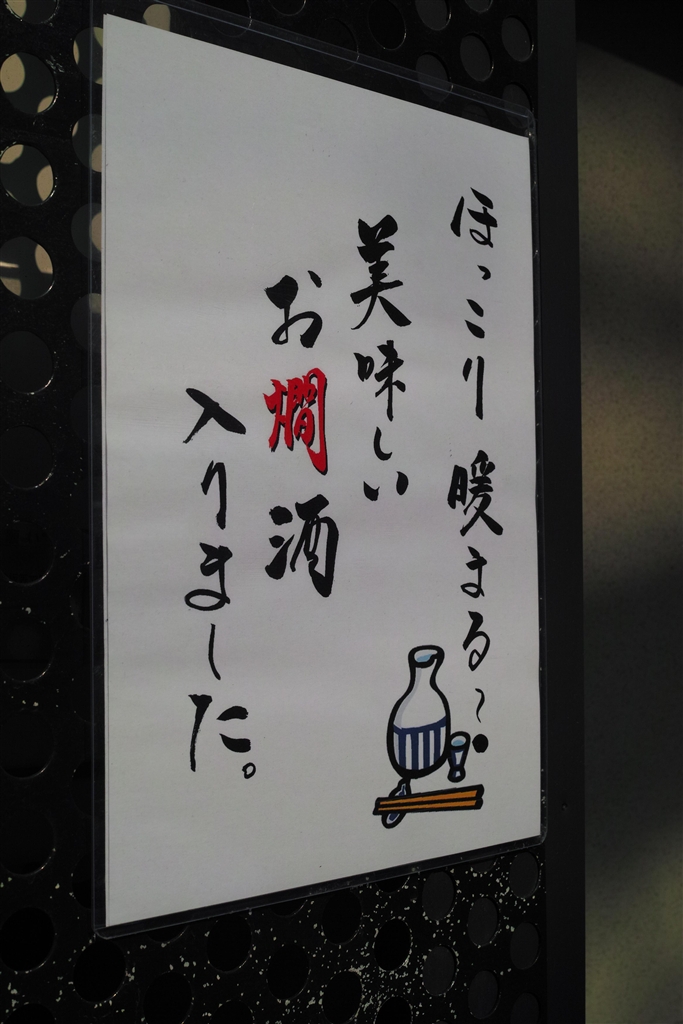 ほっこり暖まる〜
美味しい
お燗酒
入りました。